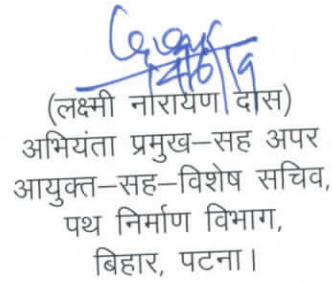 (लक्ष्मी नारायण दास)
अभियंता प्रमुख–सह अपर
आयुक्त–सह–विशेष सचिव,
पथ निर्माण विभाग,
बिहार, पटना।